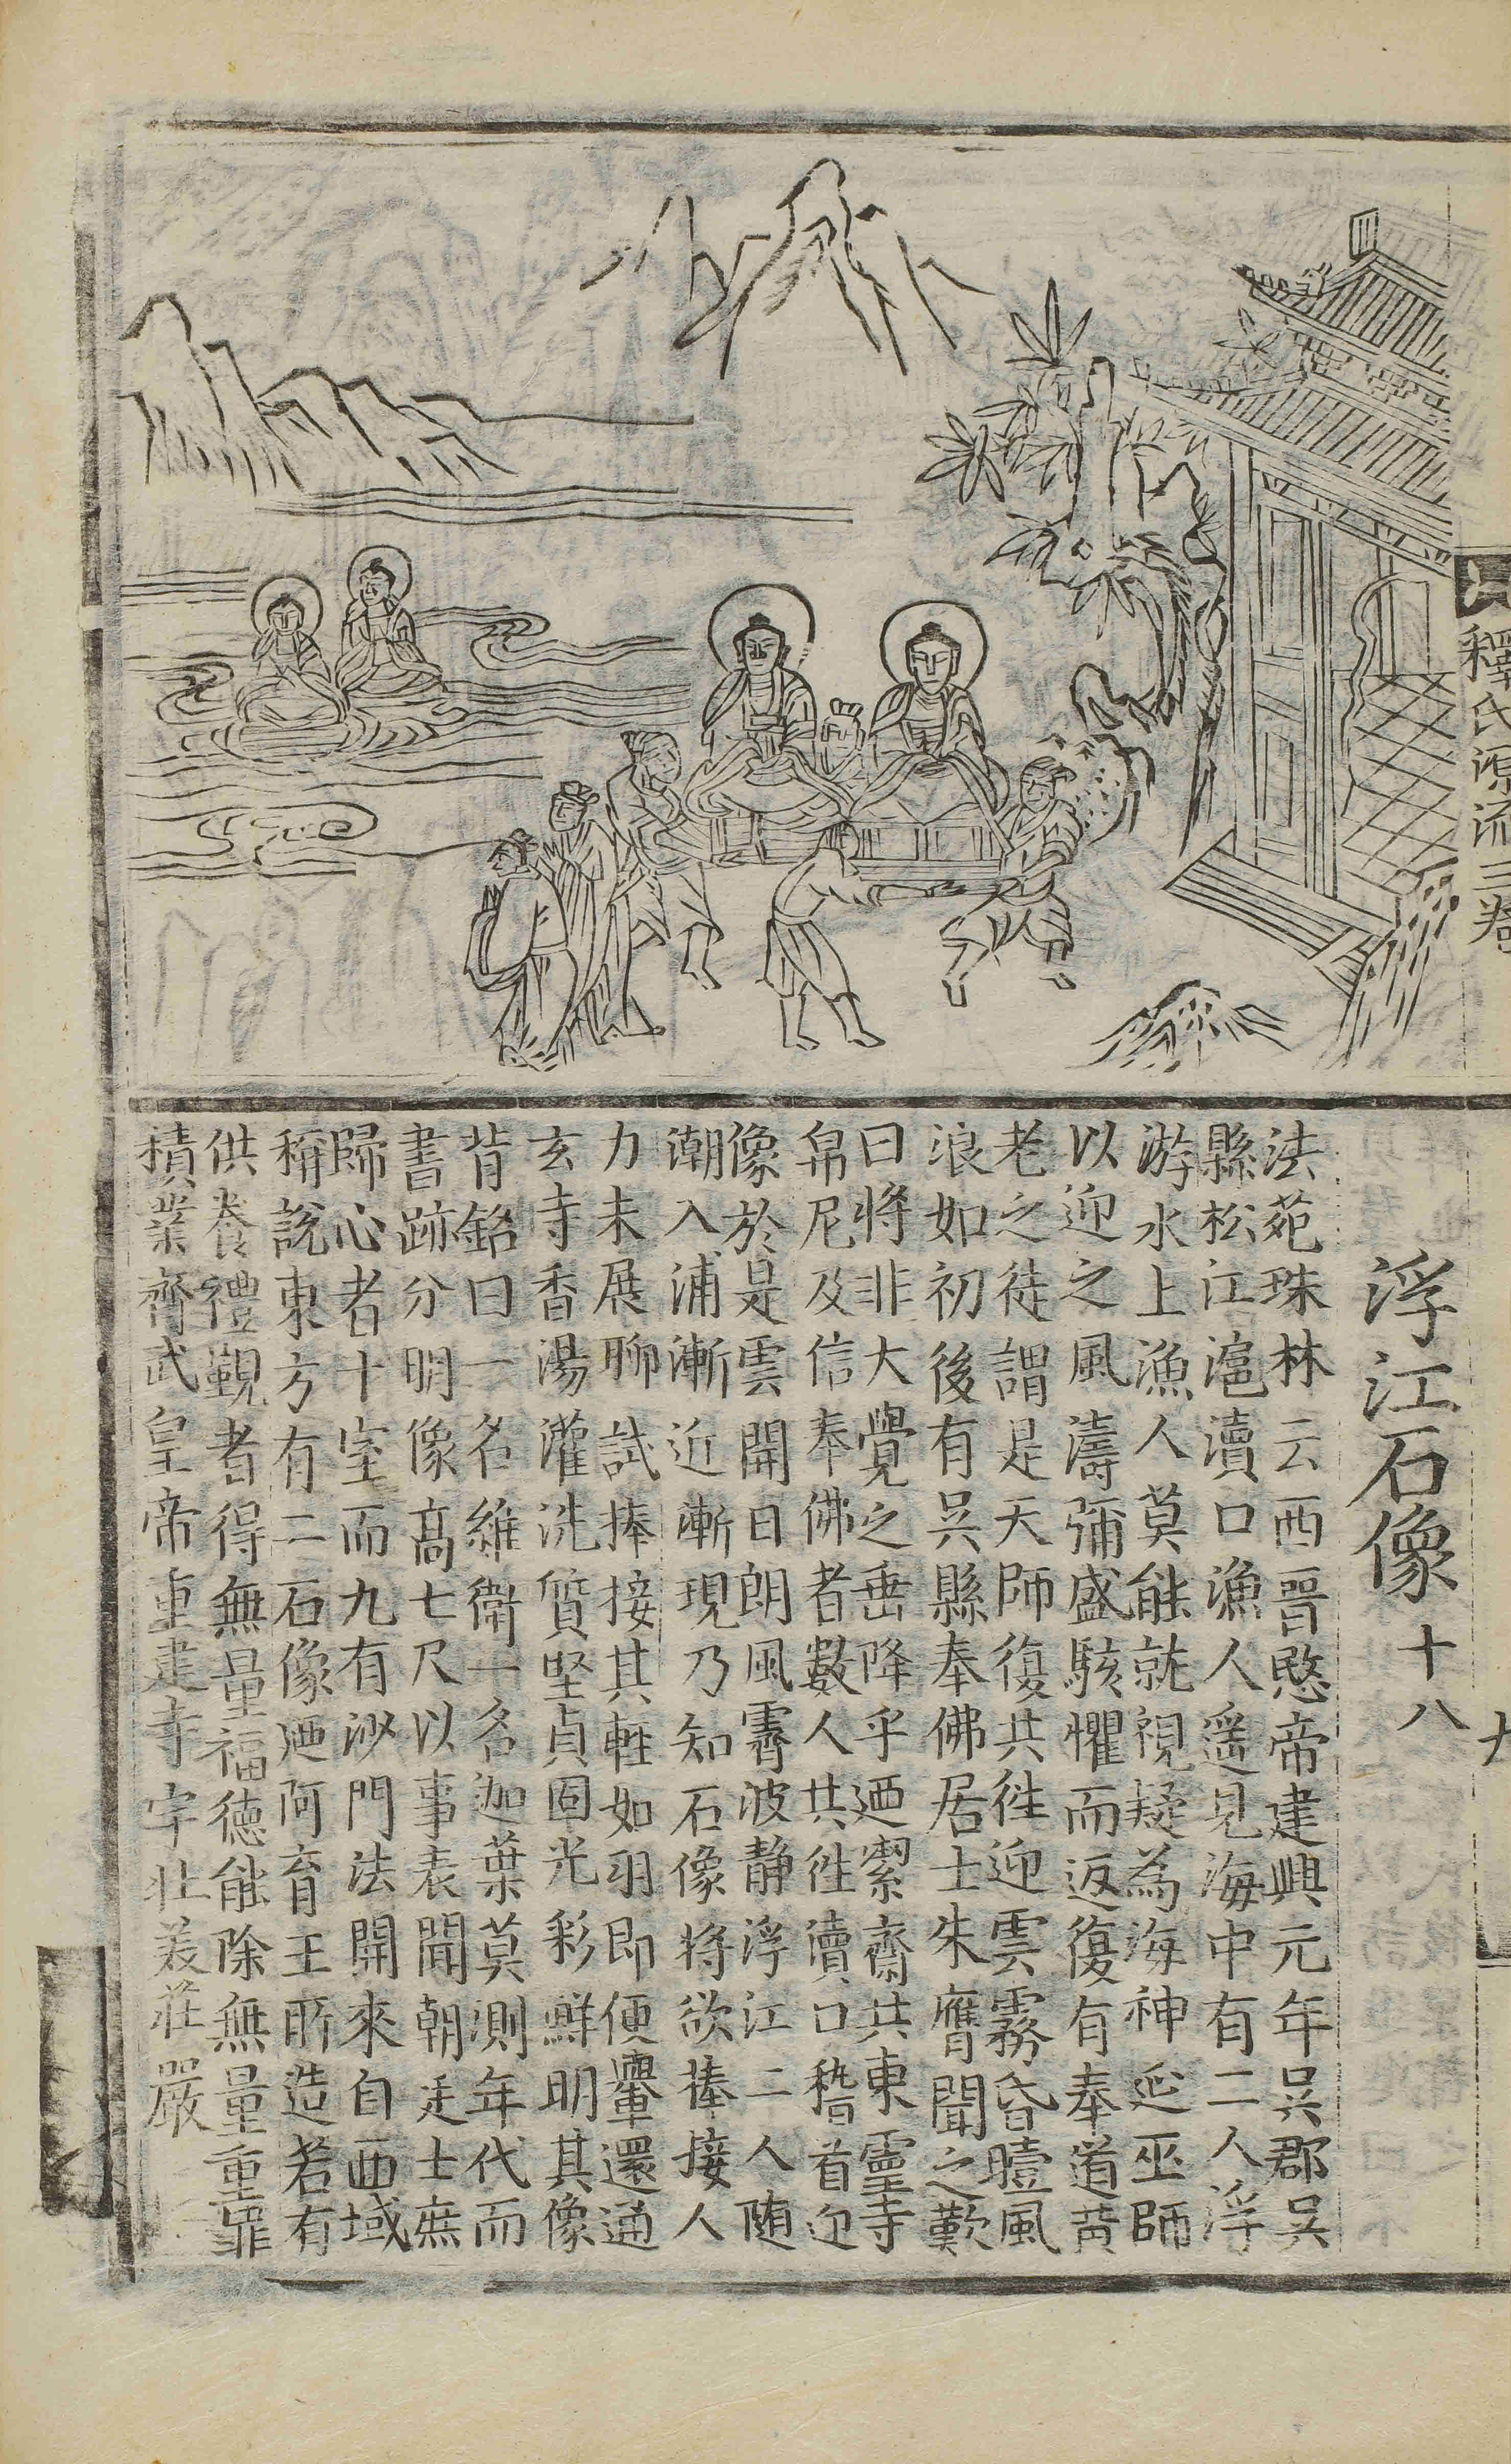 釋氏源流三卷
浮江石像十八
法苑珠林云西晉愍帝建興元年吳郡吳
縣松江滬瀆口漁人遥見海中有二人浮
游水上漁人莫能就視疑為海神延巫師
以迎之風濤彌盛駭懼而返復有奉道黃
老之徒謂是天師復共徃迎雲霧昏曀風
浪如初後有吳縣奉佛居士朱膺聞之歎
曰將非大覺之垂降乎迺潔齋共東靈寺
帛尼及信奉佛者數人共徃瀆口稽首迎
像於是雲開日朗風霽波靜浮江二人随
潮入浦漸近漸現乃知石像将欲捧接人
力未展聊試捧接其輕如羽即便轝還通
玄寺香湯灌洗質堅貞固光彩鮮明其像
背銘曰一名維衛一名迦葉莫測年代而
書跡分明像高七尺以事表聞朝廷士庶
歸心者十室而九有沙門法開來自西域
稱說東方有二石像迺阿育王所造若有
供養禮觀者得無量福德能除無量重罪
積業齊武皇帝重建寺宇壯羙莊嚴